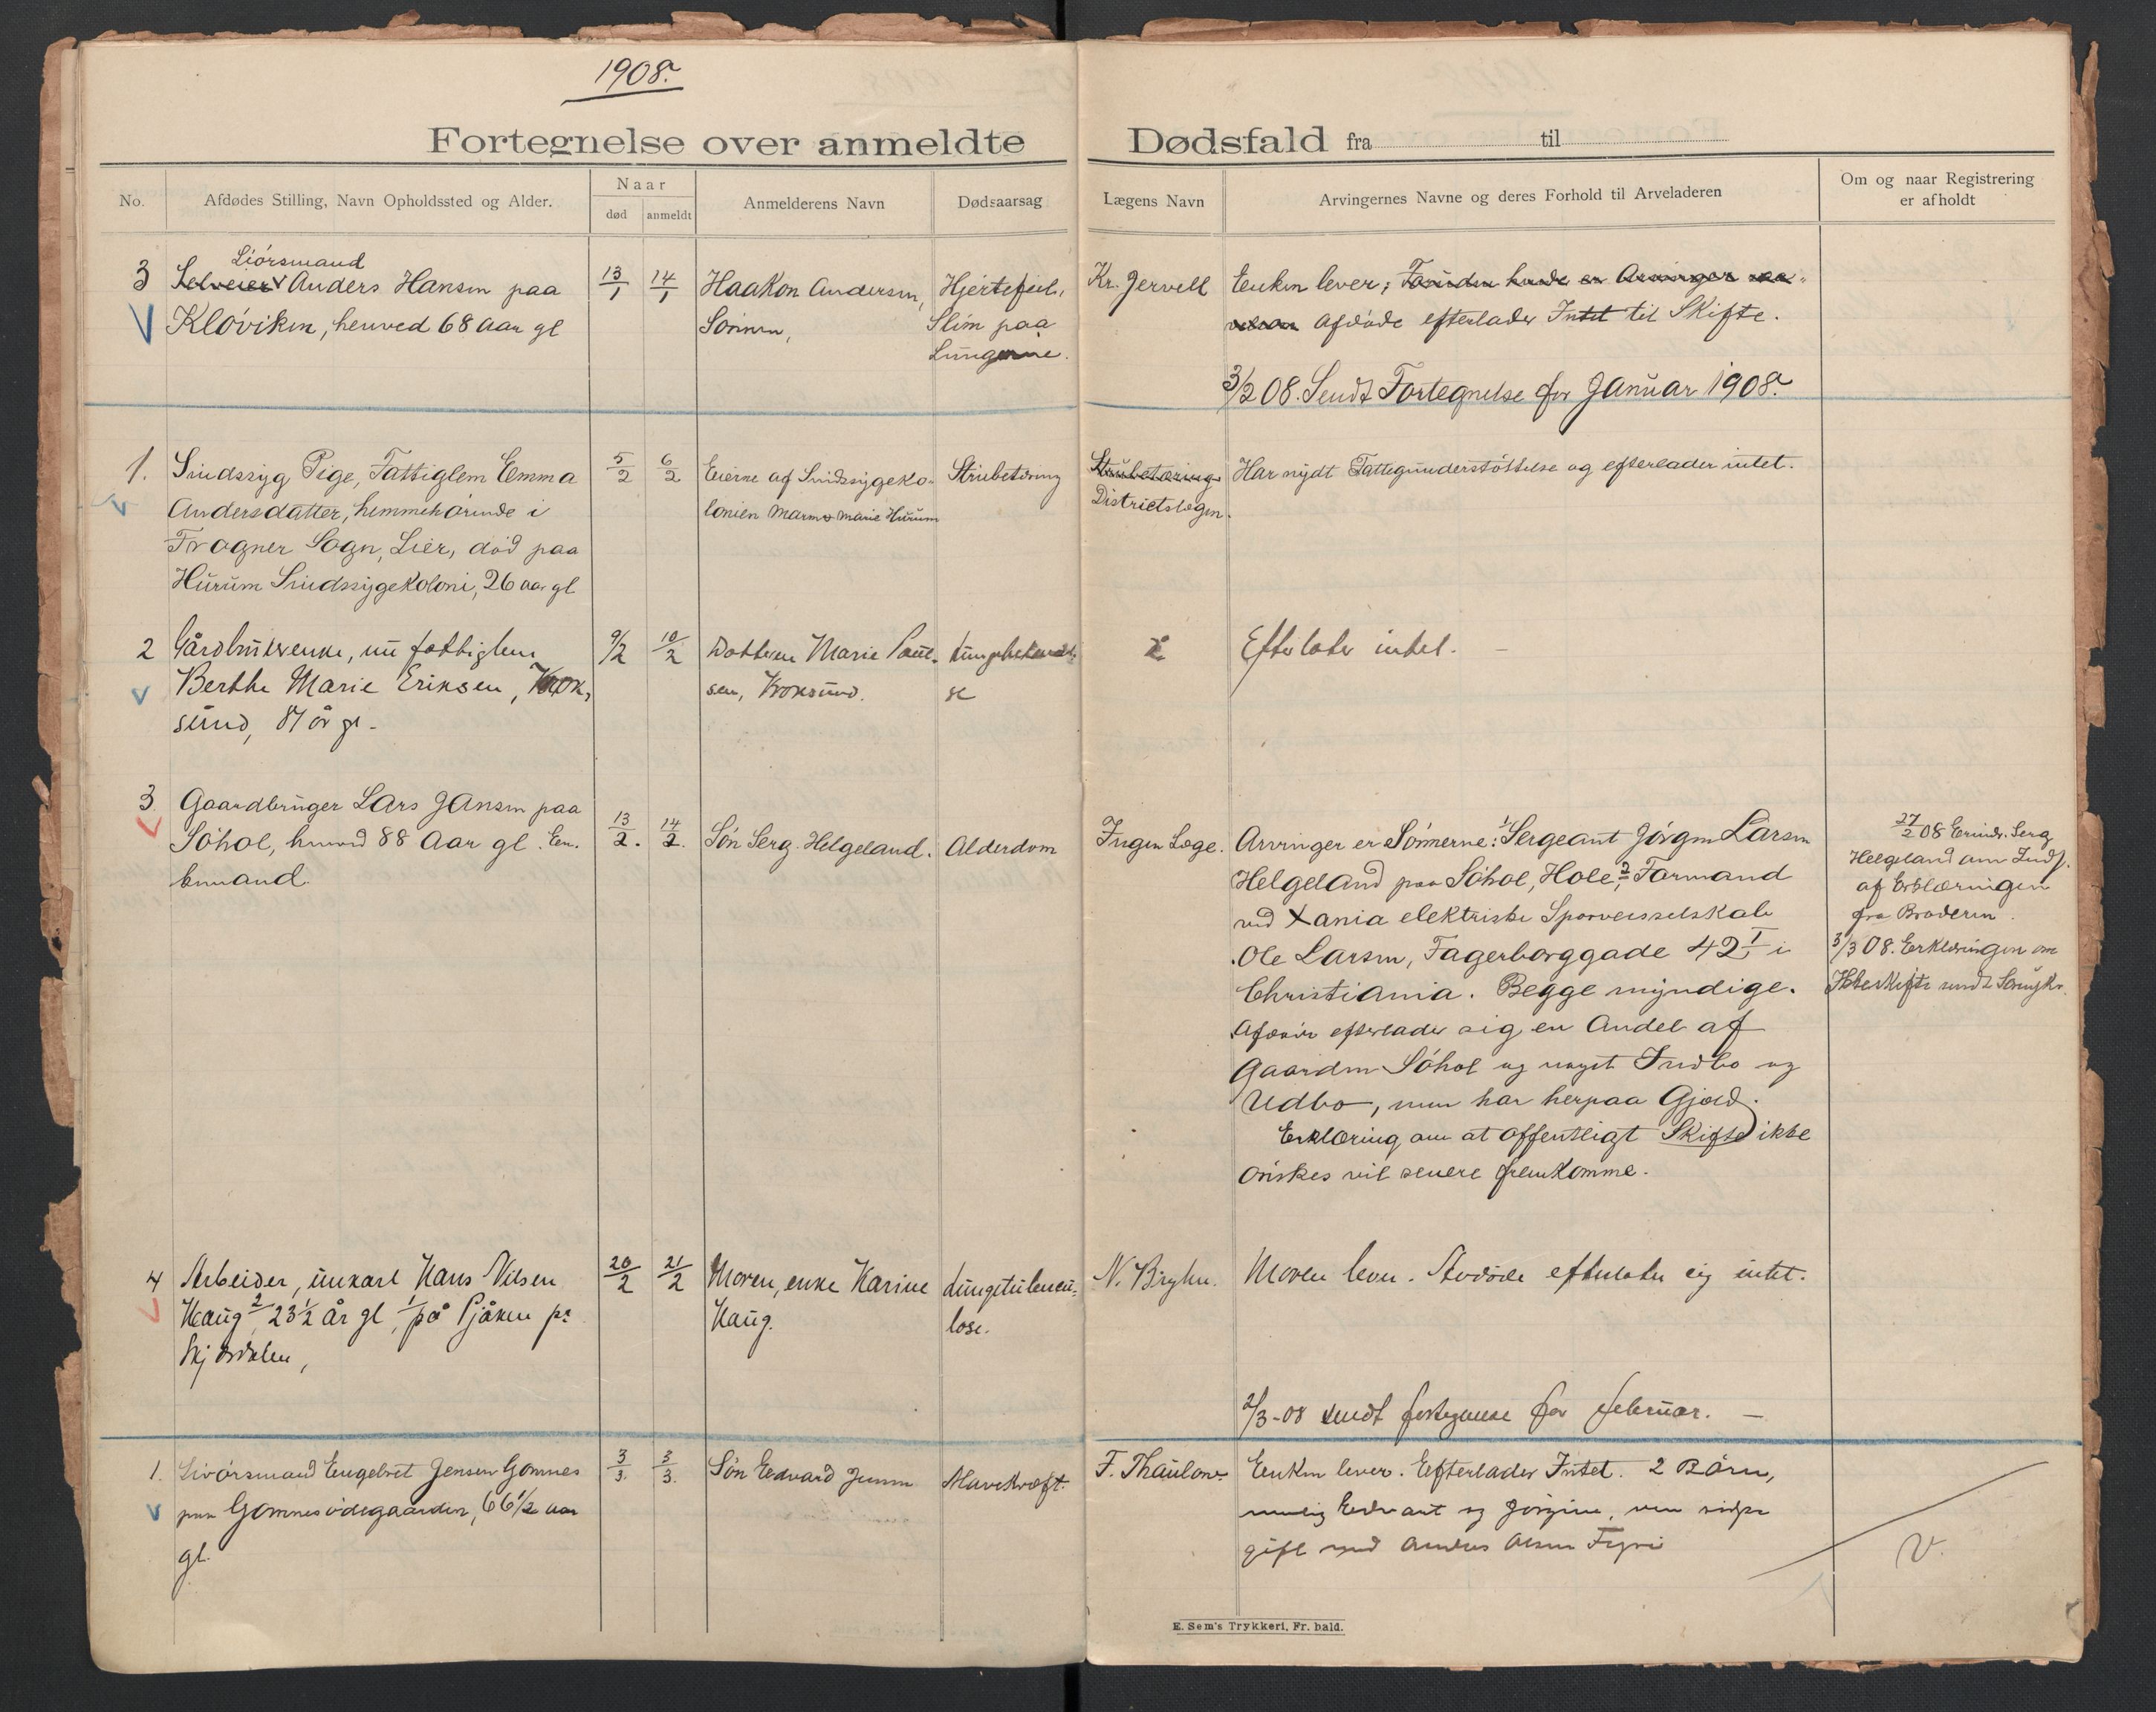 1908.
Fortegnelse over anmeldte Dødsfald fra til
No.
Afdødes Stilling, Navn Opholdssted og Alder.
Naar
død
anmeldt
Anmelderens Navn
Dødsaarsag
Lægens Navn
Arvingernes Navne og deres Forhold til Arveladeren
Om og naar Registrering
er afholdt
Livörsmand
3 Selveier Anders Hansen paa
Klöviken, henved 68 Aar gl
13/1
14/1
Haakon Andersen,
Sönnen,
Hjertefeil,
Slim paa
Lungerne.
Kr. Jervell
Enken lever;
Afdöde efterlader Intet til Skifte.
3/2 08. Sendt Fortegnelse for Januar 1908.
1. Sindssyg Pige, Fattiglem Emma
Andersdatter, hemmehörende i
Frogner Sogn, Lier, död paa
Hurum Sindssygekoloni, 26 aar gl
5/2
6/2
Eierne af Sindssygeko-
lonien Marie Hurum
Strubetæring
Strubetæring
Districtslægen.
Har nydt Fattigunderstöttelse og efterlader intet.
2 Gårdbrukerenke, nu fattiglem
Berthe Marie Eriksen, Krok-
sund, 87 år gl.
9/2
10/2
Datteren Marie Paul-
sen, Kroksund.
lungebetændel-
se
Efterlater intet. -
3. Gaardbruger Lars Jansen paa
Söhol, henved 88 Aar gl. En-
kemand.
13/2.
14/2.
Søn Serg. Helgeland.
Alderdom
Ingen Læge.
Arvinger er Sönnerne: 1 Sergeant Jörgen Larsen
Helgeland paa Söhol, Hole, 2 Formand
ved Xania elektriske Sporveisselskab
Ole Larsen, Fagerborggade 42 I i
Christiania. Begge myndige.
Afdöde efterlader sig en Andel af
Gaarden Söhol og noget Indbo og
Udbo, men har herpaa Gjæld.
Erklæring om at offentligt Skifte ikke
önskes vil senere fremkomme.
27/2 08 Erindr. Serg
Helgeland om Inds.
af Erklæringen
fra Broderen.
3/3 08. Erklæringen om
sendt Sorenskr.
4 Arbeider, unkarl Hans Nilsen
Haug 2, 23 1/2 år gl, 1 på Pjåken pr
Skjærdalen,
20/2
21/2
Moren, enke Karine
Haug.
Lungetuberku-
lose.
N. Bryhn.
Moren lever. Avdöde efterlater sig intet.
2/3-08 sendt fortegnelse for februar. -
1. Livörsmand Engebret Jensen Gomnes
paa Gomnesödegaarden, 66 1/2 aar
gl.
3/3.
3/3.
Søn Edvard Jensen
Mavekræft.
F. Thaulow
Enken lever. Efterlader Intet. 2 Börn,
nemlig Edvart og Jörgine,
gift med Anders Olsen Fyri
V.
E. Sem's Trykkeri, Fr. hald.